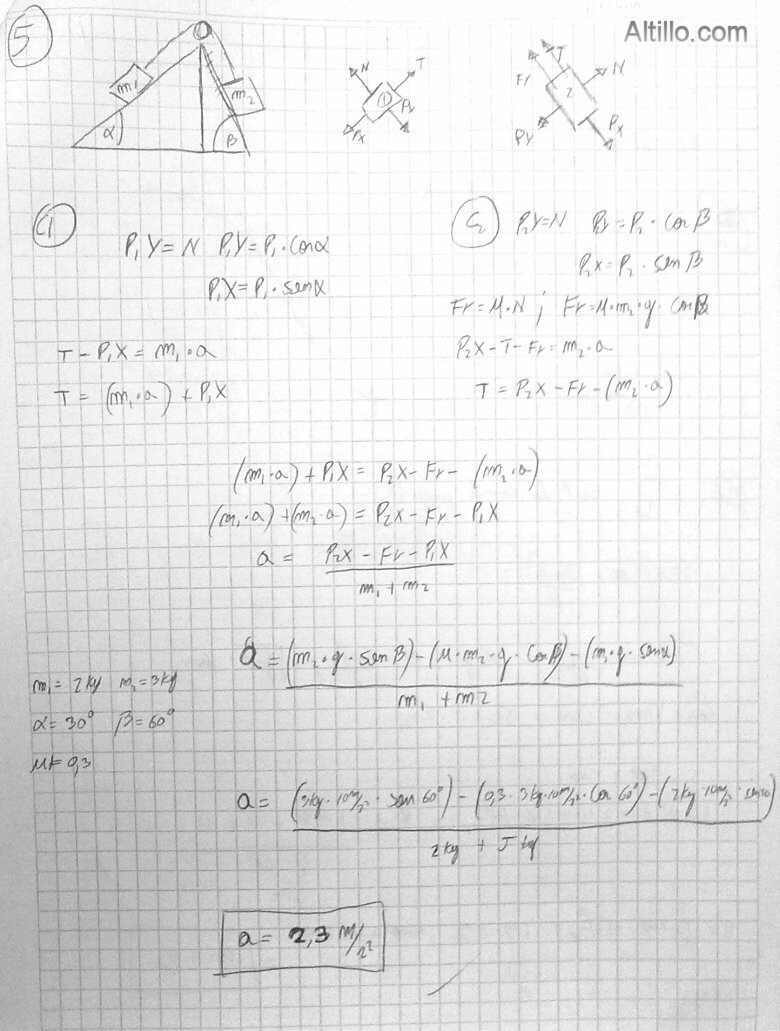 Altillo.com
5
m₁ m₂
α β
N T
1
Px Py
Fr T N
2
Py Px
C1
P₁Y = N P₁Y = P₁ · cos α
P₁X = P₁ · sen α
T - P₁X = m₁ · a
T = (m₁ · a) + P₁X
C₂
P₂Y = N P₂Y = P₂ · cos β
P₂X = P₂ · sen β
Fr = μ · N ; Fr = μ · m₂ · g · cos β
P₂X - T - Fr = m₂ · a
T = P₂X - Fr - (m₂ · a)
(m₁ · a) + P₁X = P₂X - Fr - (m₂ · a)
(m₁ · a) + (m₂ · a) = P₂X - Fr - P₁X
a = P₂X - Fr - P₁X
m₁ + m₂
a = (m₂ · g · sen β) - (μ · m₂ · g · cos β) - (m₁ · g · sen α)
m₁ + m2
m₁ = 2 kg m₂ = 3 kg
α = 30° β = 60°
μk = 0,3
a = (3kg · 10 m/s² · sen 60°) - (0,3 · 3kg · 10 m/s² · cos 60°) - (2 kg · 10 m/s² · sen 30)
2 kg + 3 kg
a = 2,3 m/s²